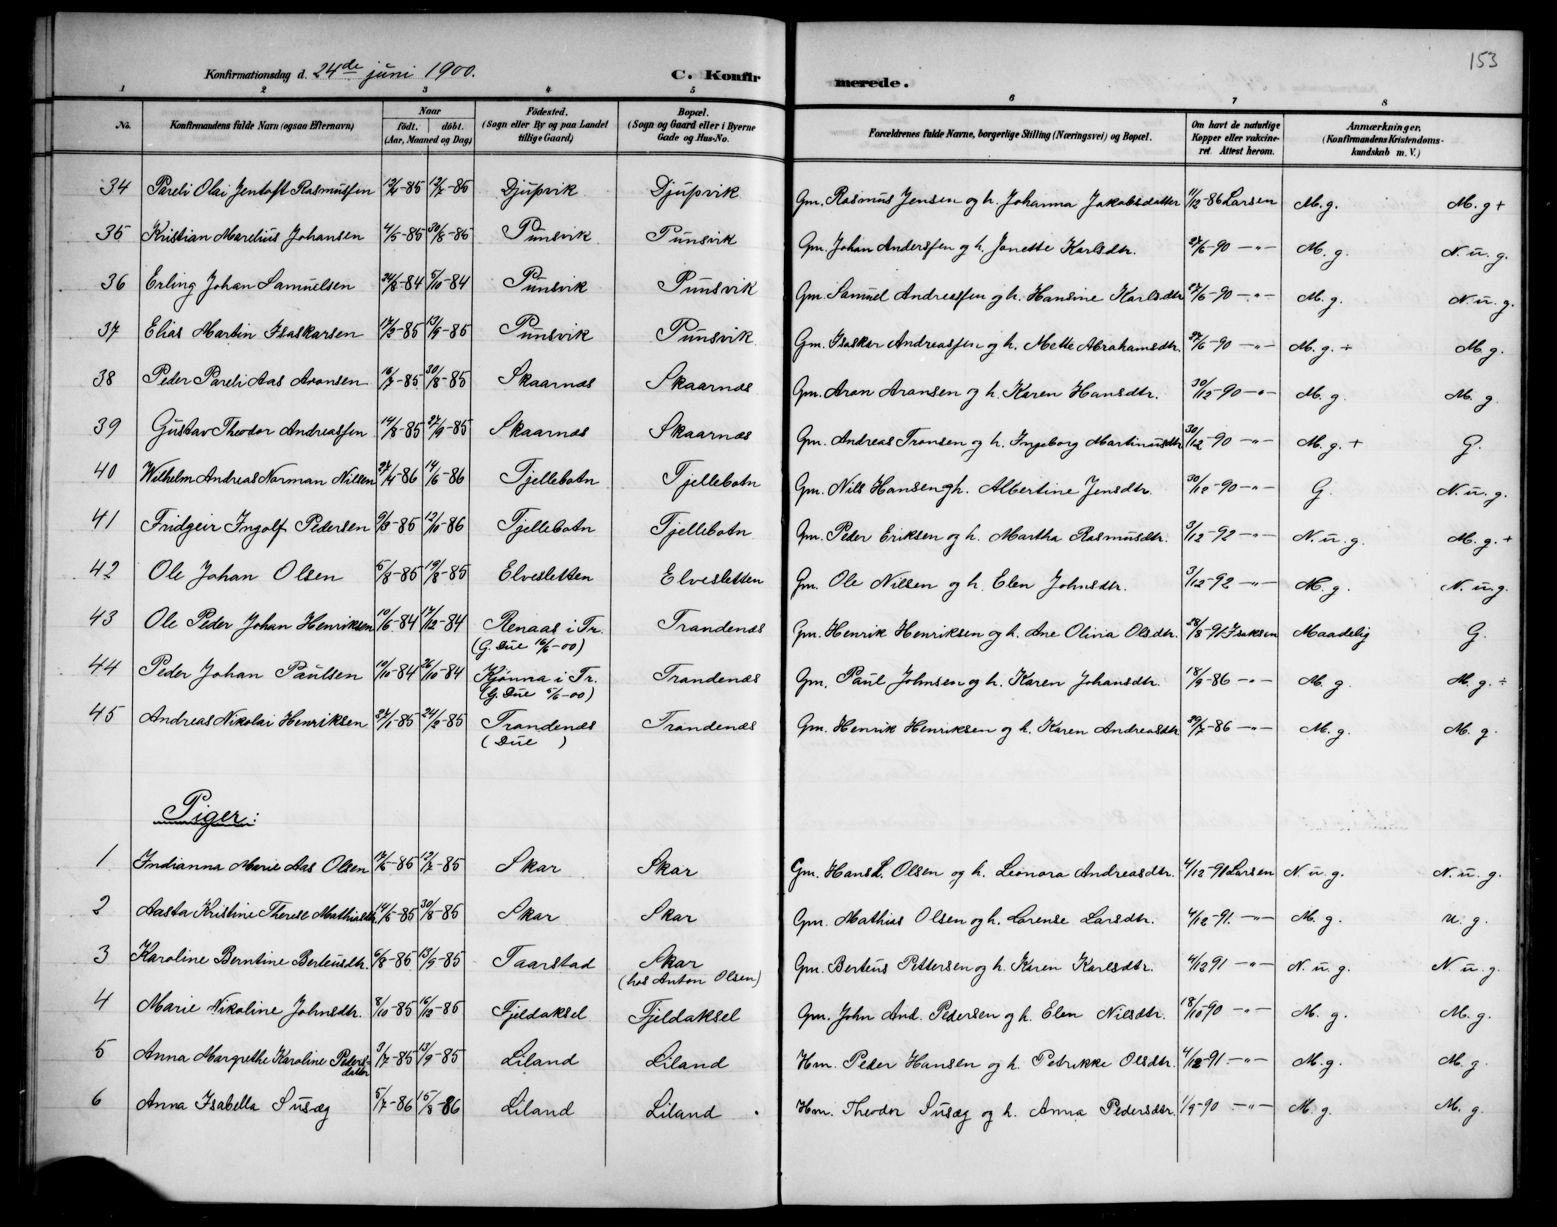 153
Konfirmationsdag d. 24de juni 1900.
C. Konfirmerede.
1 2 3 4 5 6 7 8
No. Konfirmandens fulde Navn (ogsaa Efternavn) Naar født. døbt. (Aar, Maaned og Dag) Fødested. (Sogn eller By og paa Landet tillige Gaard) Bopæl. (Sogn og Gaard eller i Byerne Gade og Hus-No. Forældrenes fulde Navne, borgerlige Stilling (Næringsvei) og Bopæl. Om havt de naturlige Kopper eller vakcineret. Attest herom. Anmærkninger. (Konfirmandens Kristendomskundskab m. V.)
34 Pareli Olai Jentoft Rasmussen 12/7-85 Djupvik Djupvik Gm. Rasmus Jensen og h. Johanna Jakobsdatter 11/12-86 Larsen M. g. M. g +
35 Kristian Marelius Johansen 4/5-85 30/8-85 Punsvik Punsvik Gm. Johan Anderssen og h. Janette Karlsdtr. 27/6-90 -"- M. g. N. u. g.
36 Erling Johan Samuelsen 24/8-84 5/10-84 Punsvik Punsvik Gm. Samuel Andreassen og h. Hansine Karlsdtr 27/6-90 -"- M. g. N. u. g.
37 Elias Martin Isaskarsen 13/9-85 Punsvik Punsvik Gm. Isaskar Andreassen og h. Mette Abrahamsdtr. 27/6-90 -"- M. g. + M. g.
38 Peder Pareli Aas Aronsen 16/7-85 30/8-85 Skaarnæs Skaarnæs Gm. Aron Aronsen og h. Karen Hansdtr. 30/12-90 -"- M. g. M. g.
39 Gustav Theodor Andreassen 14/8-85 27/9-85 Skaarnæs Skaarnæs Gm. Andreas Tronsen og h. Ingeborg Martinusdtr 30/12-90 -"- M. g. + G.
40 Wilhelm Andreas Norman Nilsen 27/4-86 14/6-86 Tjellebotn Tjellebotn Gm. Nils Hansen og h. Albertine Jensdtr. 30/12-90 -"- G. N. u. g.
41 Fridgeir Ingolf Pedersen 9/9-85 Tjellebotn Tjellebotn Gm. Peder Eriksen og h. Martha Rasmusdtr. 3/12-92 -"- N. u. g. M. g. +
42 Ole Johan Olsen 5/8-85 19/8-85 Elvesletten Elvesletten Gm. Ole Nilsen og h. Elen Johnsdtr. 3/12-92 -"- M. g. N. u. g.
43 Ole Peder Johan Henriksen 10/6-84 17/12-84 Renaas i Tr. Trandenæs Gm. Henrik Henriksen og h. Ane Olivia Olsdtr. 28/8-91 Isaksen Maadelig G.
(G. Due 16/6-00)
44 Peder Johan Paulsen 19/10-84 26/10-84 Kjønna i Tr. Trandenæs Gm. Paul Johnsen og h. Karen Johansdtr. 18/9-86 -"- M. g. M. g. ÷
(G. Due 5/6-00)
45 Andreas Nikolai Henriksen 21/1-85 24/2-85 Trandenæs Trandenæs Gm. Henrik Henriksen og h. Karen Andreasdtr 29/7-86 -"- M. g. M. g.
(Due )
Piger:
1 Indianna Marie Aas Olsen 17/5-85 12/7-85 Skar Skar Gm. Hans L. Olsen og h. Leonora Andreasdtr. 4/12-91 Larsen N. u. g. N. u. g.
2 Aasta Kristine Therese Mathiasdtr 14/5-85 30/8-85 Skar Skar Gm. Mathias Olsen og h. Lorense Larsdtr. 4/12-91. -"- M. g. u. g.
3 Karoline Berntine Berteusdtr. 6/8-85 13/9-85 Taarstad Skar Gm. Berteus Pettersen og h. Karen Karlsdtr. 4/12 91 -"- N. u. g. N. u. g.
(hos Anton Olsen)
4 Marie Nikoline Johnsdtr. 8/10-85 16/12-85 Fjeldaksel Fjeldaksel Gm. John And. Pedersen og h. Elen Nilsdtr. 18/10-90 -"- M. g. M. g.
5 Anna Margrethe Karoline Pedersdatter 3/7-85 13/9-85 Liland Liland Hm. Peder Hansen og h. Petrikke Olsdtr. 4/12-91 -"- M. g. M. g.
6 Anna Isabella Susæg 5/7-86 15/8-86 Liland Liland Hm. Theodor Susæg og h. Anna Pedersdtr. 1/9-90 -"- M. g. M. g.